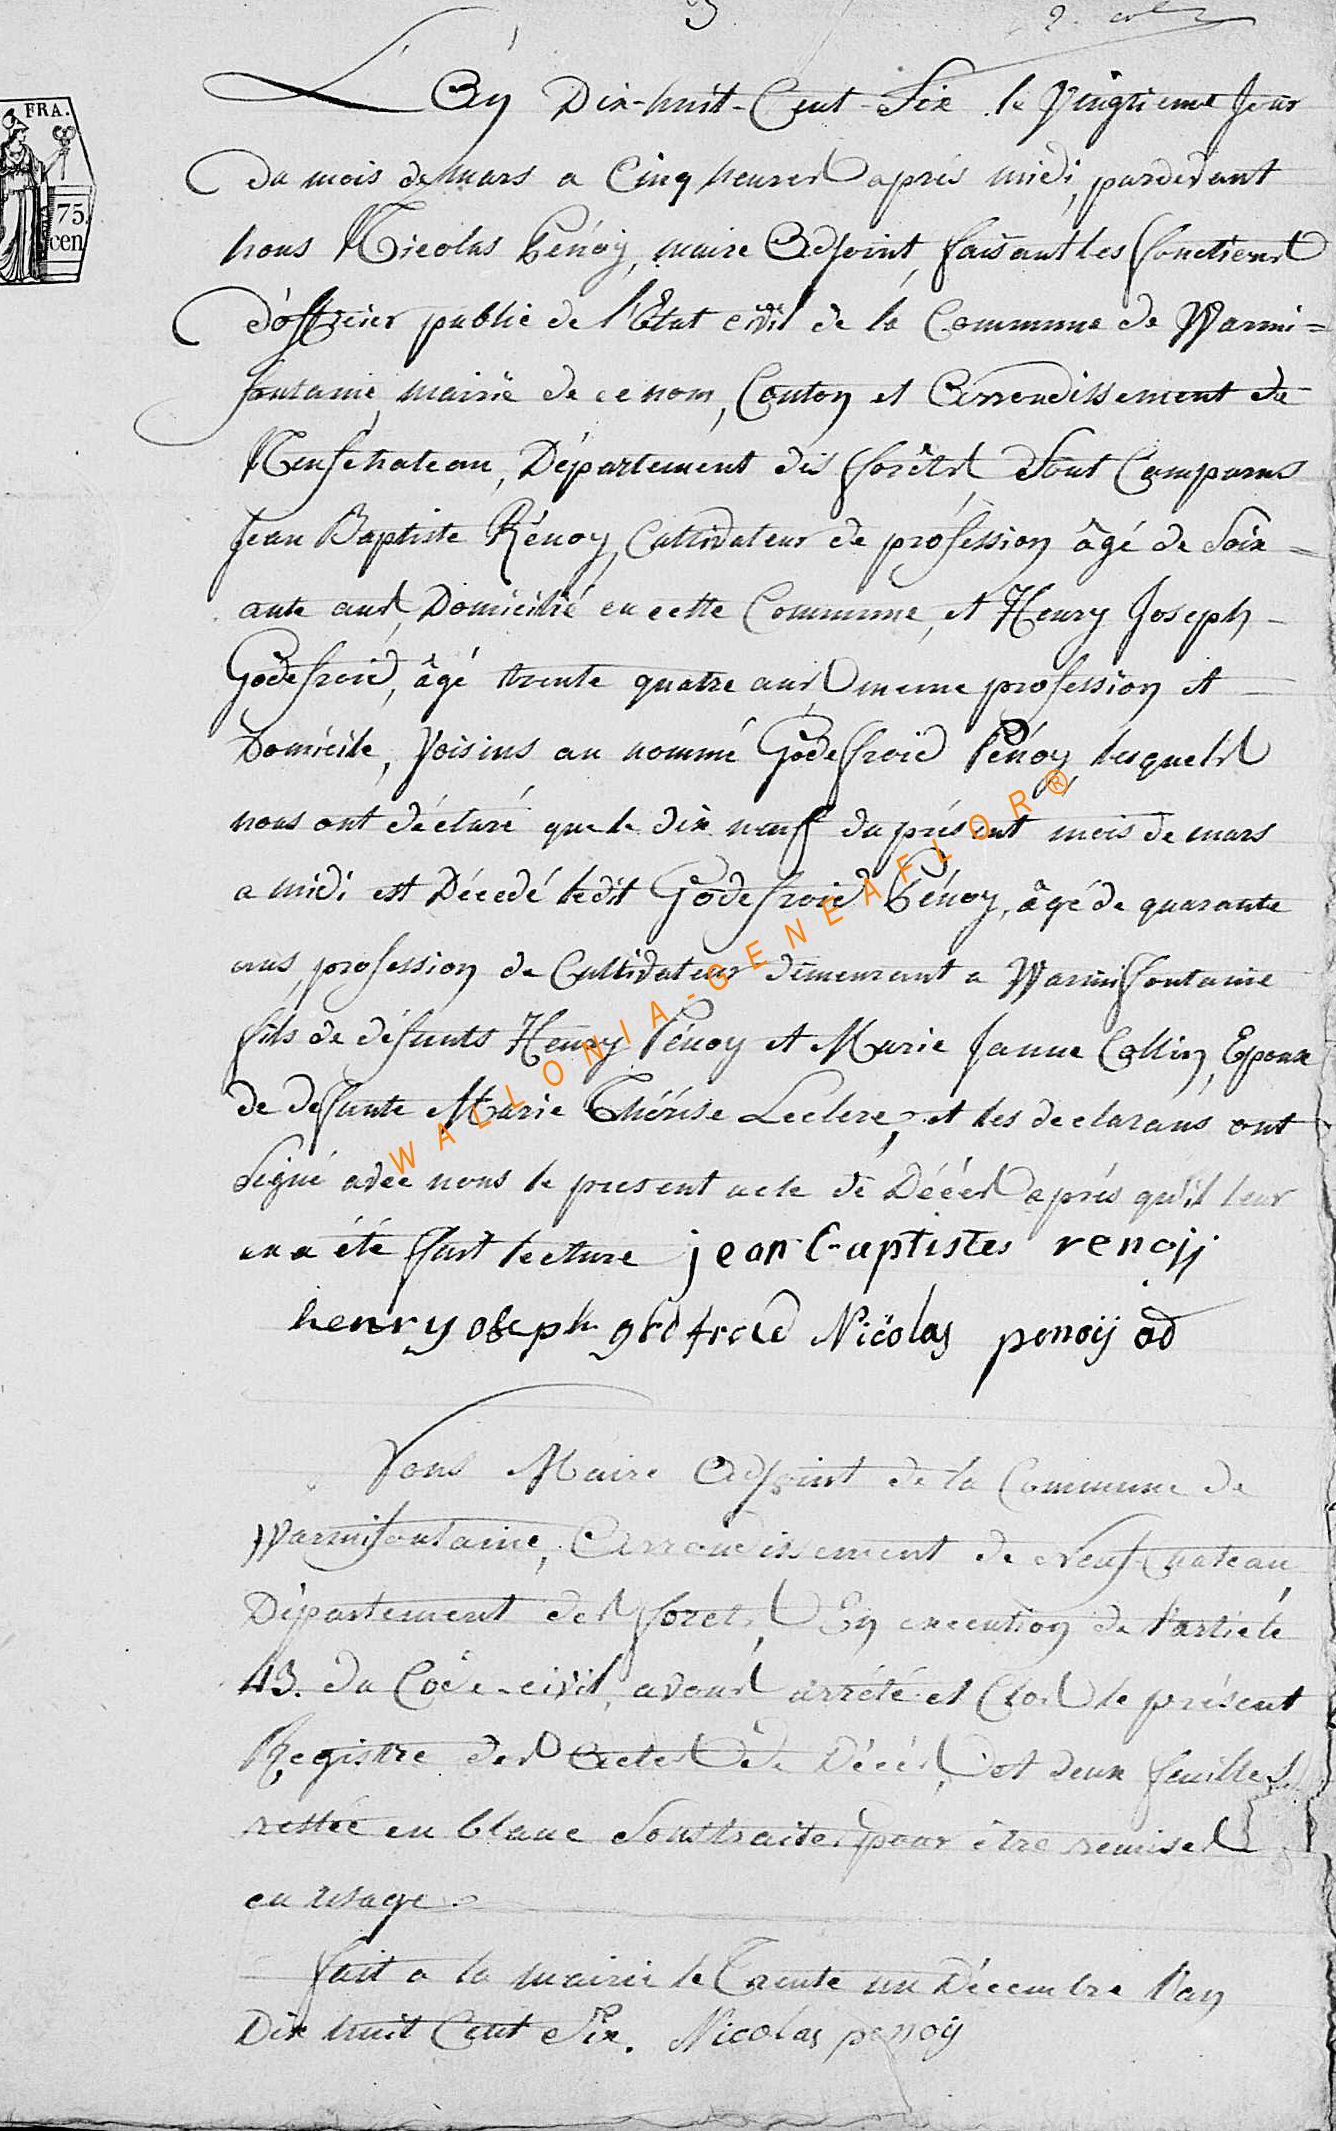 3
FRA.
75.
cen
L'An Dix-huit-Cent-Six le Vingtieme Jour
du mois de mars a Cinq heures après midi, pardevant
nous Nicolas Pénoy, maire Adjoint, faisant les fonctions
d'officier public de l'Etat civil de la Commune de Warmi=
fontaine, mairie de ce nom, Canton et Arrondissement de
Neufchateau, Département des forêts Sont Comparus
Jean Baptiste Rénoy, Cultivateur de profession âgé de Soix=
ante ans, Domicilié en cette Commune, et Henry Joseph
Godefroid, âgé trente quatre ans, meme profession et
Domicile, Voisins au nommé Godeffroid Pénoy, lesquels
nous ont déclaré que le dix neuf du présent mois de mars
a midi est Décedé ledit Godefroid Pénoy, âgé de quarante
ans, profession de Cultivateur demeurant a Warmiffontaine
fils de défunts Henry Pénoy et Marie Janne Collin, Epoux
de defunte Marie Thérése Leclere, et les declarans ont
Signé avec nous le present acte de Décés après qu'il leur
en a été fait lecture jean baptistes renoÿ
henry oseph godfroid Nicolas penoÿ ad
WALLONIA-GENEAFLOR®
Nous Maire Adjoint de la Commune de
Warmifontaine, Arrondissement de Neufchateau
Département des forets, En execution de l'article
43. du Code-civil, avons arrété et Clos le présent
Registre des Actes de Décés, et deux feuilles
restée en blanc Soustraites pour être remises
en usage.
fait a la mairie le Trente un Décembre l'an
Dix huit Cent Six. Nicolas penoÿ